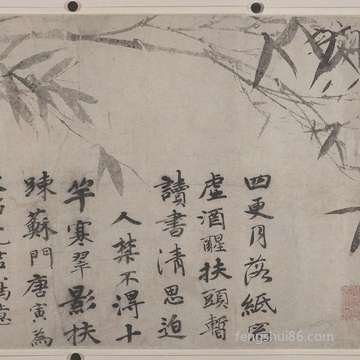 四更月落紙
虛酒醒扶頭暫
讀書清思迫
人禁不得十
竿寒翠影扶
踈蘇門唐寅為
fengshui86.com